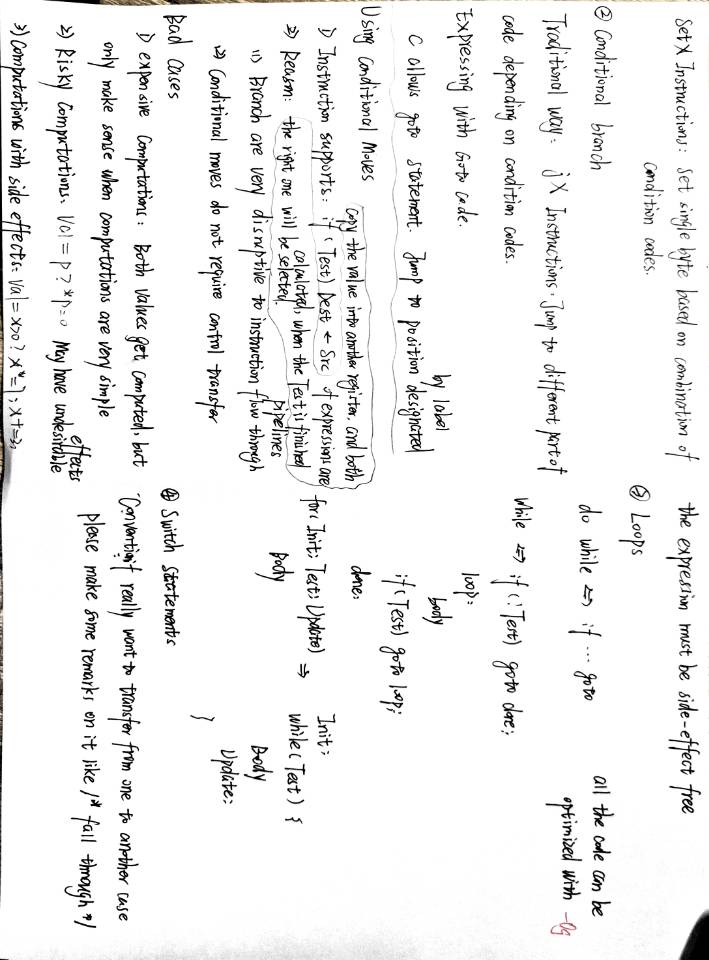 SetX Instructions: Set single byte based on combination of
Condition codes.
② Conditional branch
Traditional way: jX Instructions. Jump to different part of
code depending on condition codes.
Expressing with Goto Code.
by label
C allows goto statement. Jump to position designated
Using Conditional Moves
Copy the value into another register. and both
1) Instruction supports: if (Test) Dest ← Src of expressions are
calculated, when the Test is finished
2) Reason: the right one will be selected.
pipelines
(1) Branch are very disruptive to instruction flow through
(2) Conditional moves do not require control transfer
Bad Cases
1) expensive Computations: Both Values get computed, but
only make sense when computations are very simple
effects
2) Risky Computations. Val = p ? *p:0 May have undesirable
3) Computations with side effects: Val = x>0 ? x*=7: x+=3,
the expression must be side-effect free
③ Loops
do while ⇔ if ... goto
all the code can be
optimized with -Og
While ⇔ if (!Test) goto done;
loop:
body
if (Test) goto loop;
done:
for( Init; Test; Update) ⇒
Body
Init;
while( Test ) {
Body
Update;
}
④ Switch Statements
Convention: if really want to transfer from one to another case
please make some remarks on it like /* fall through */